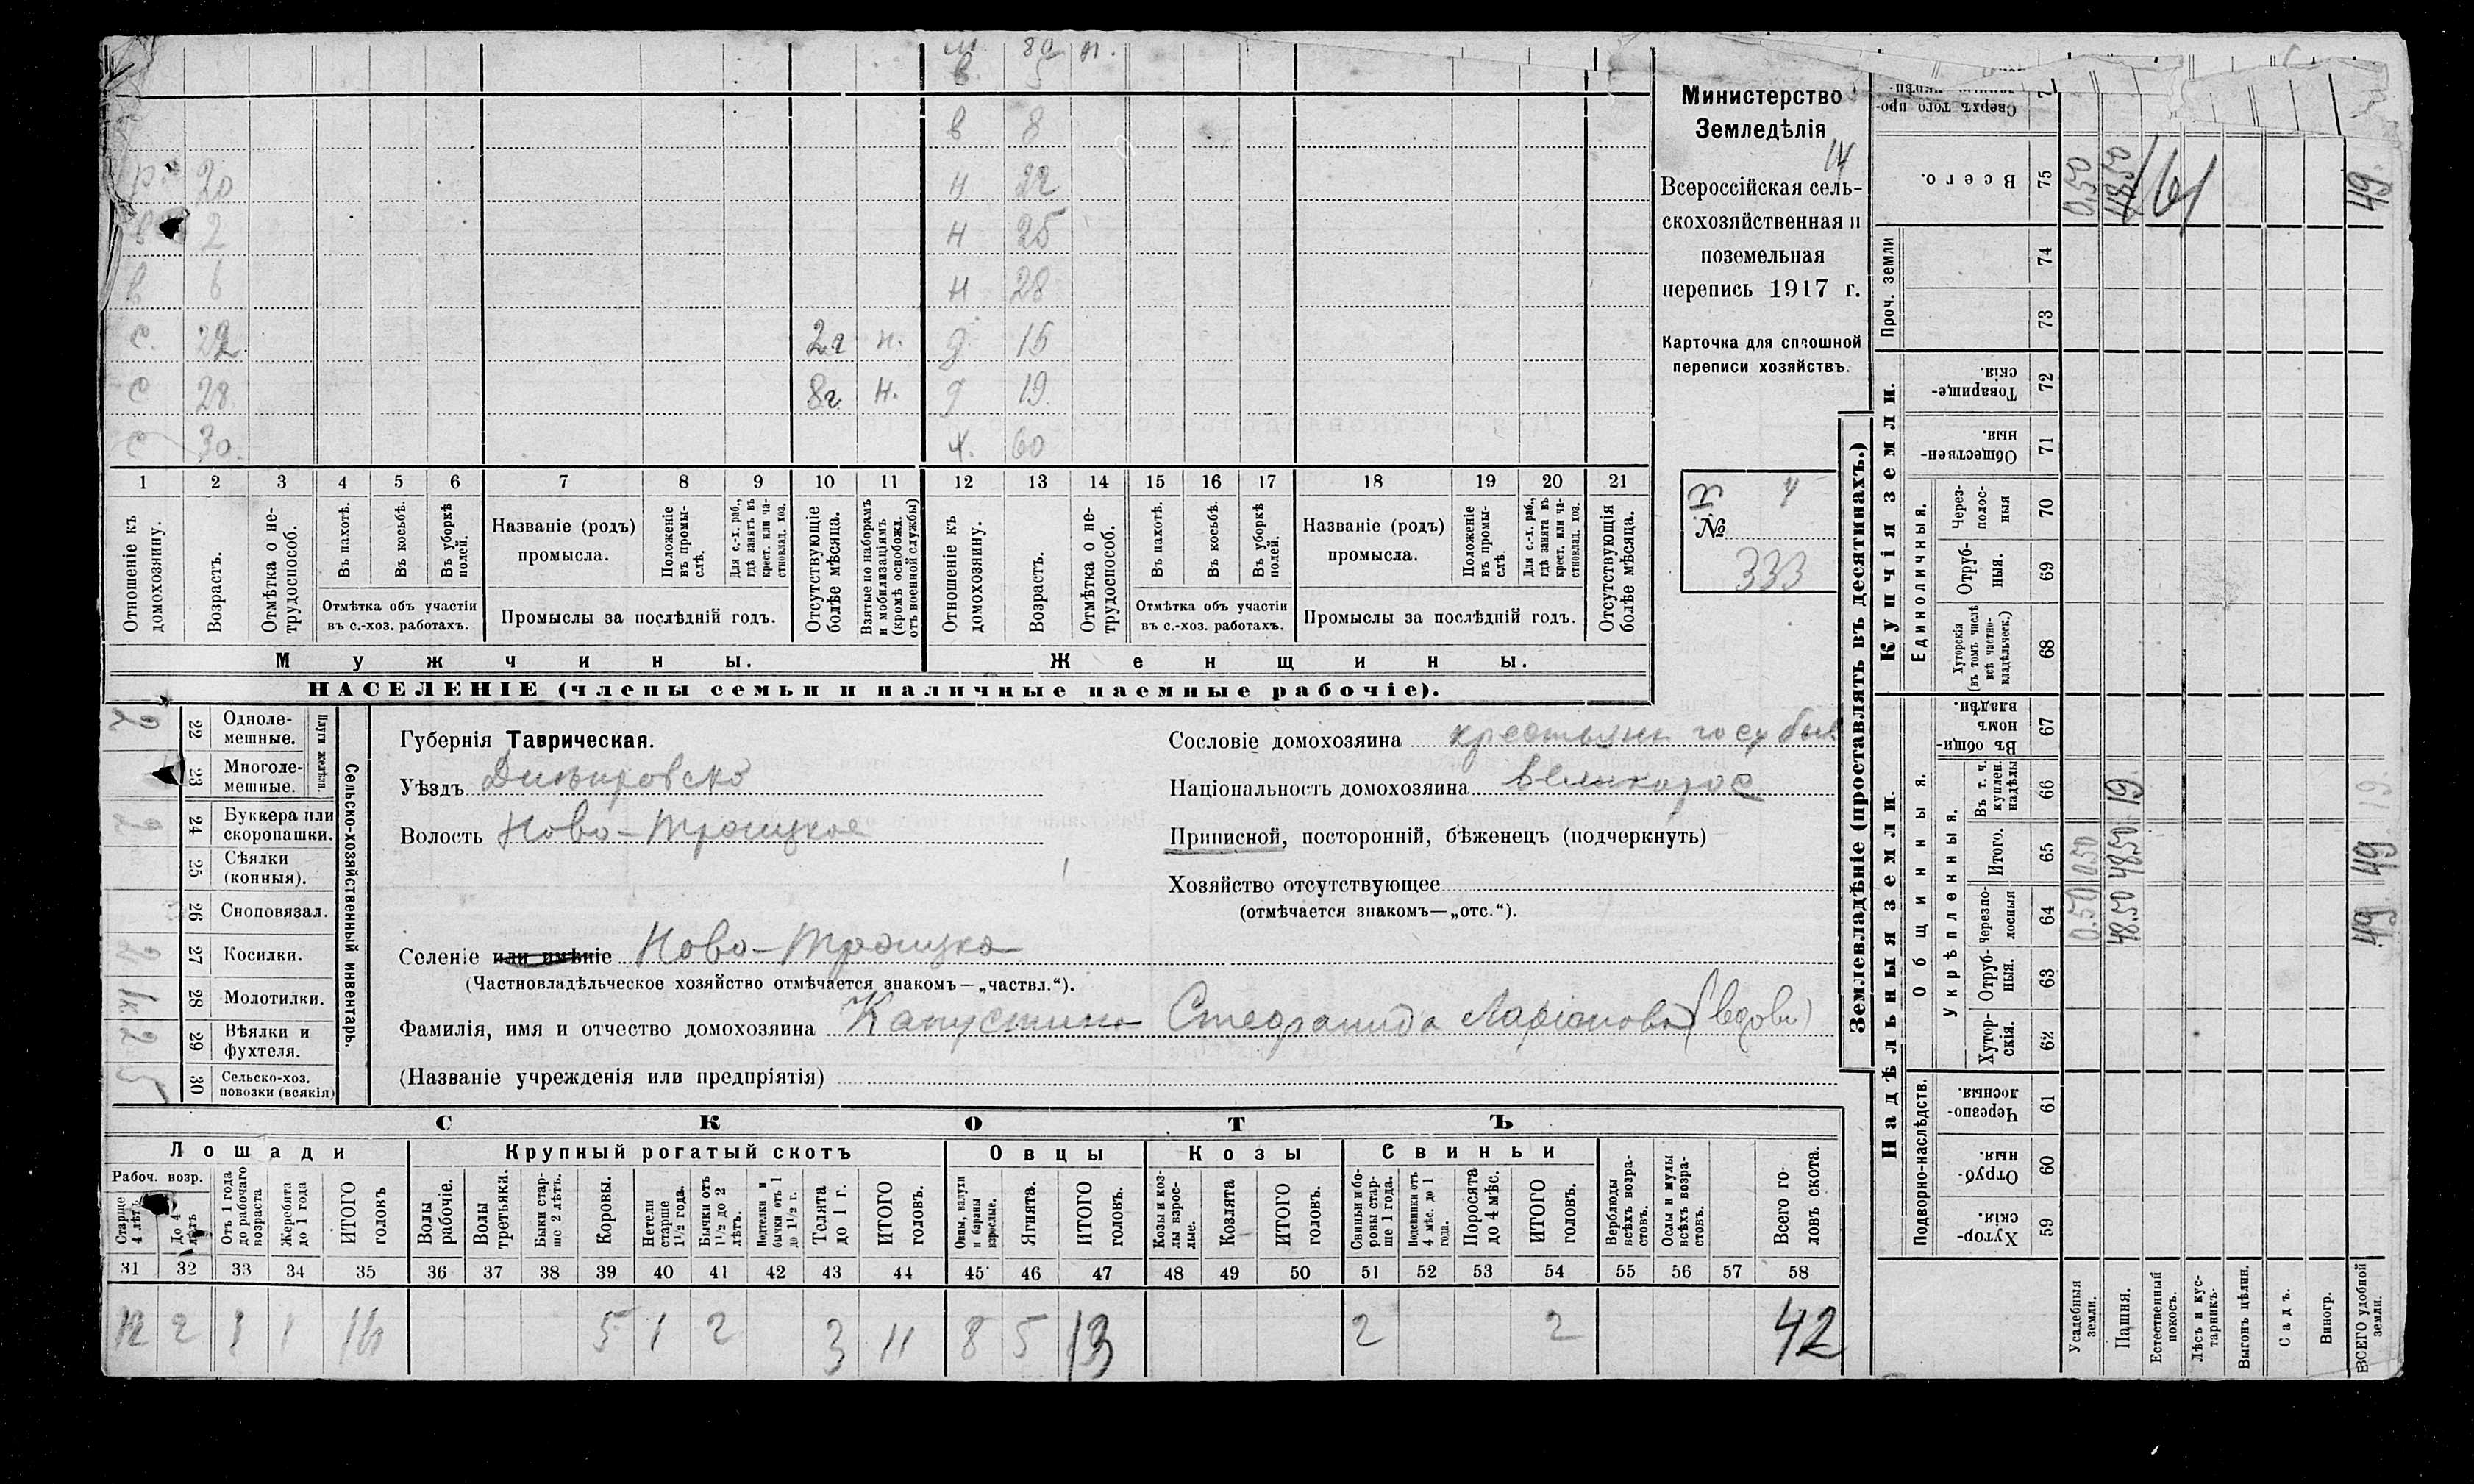 ш. 80 н.
в. 5
в 8
р. 20 н 22
2 н 25
в 6 н 28
с. 22 2г н. д. 15
с 28 8г. н. д 19.
с 30. х. 60
1 2 3 4 5 6 7 8 9 10 11 12 13 14 15 16 17 18 19 20 21
Отношеніе къ домохозяину.
Возрастъ.
Отмѣтка о нетрудоспособ.
Въ пахотѣ.
Въ косьбѣ.
Въ уборкѣ полей.
Отмѣтка объ участіи въ с.-хоз. работахъ.
Названіе (родъ) промысла.
Положеніе въ промыслѣ.
Для с.-х. раб., гдѣ занятъ въ крест. или частновлад. хоз.
Промыслы за послѣдній годъ.
Отсутствующіе болѣе мѣсяца.
Взятые по наборамъ и мобилизаціямъ (кромѣ освобожд. отъ военной службы)
Отношеніе къ домохозяину.
Возрастъ.
Отмѣтка о нетрудоспособ.
Въ пахотѣ.
Въ косьбѣ.
Въ уборкѣ полей.
Отмѣтка объ участіи въ с.-хоз. работахъ.
Названіе (родъ) промысла.
Положеніе въ промыслѣ.
Для с.-х. раб., гдѣ занята въ крест. или частновлад. хоз.
Промыслы за послѣдній годъ.
Отсутствующія болѣе мѣсяца.
Мужчины. Женщины.
НАСЕЛЕНІЕ (члены семьи и наличные наемные рабочіе).
Министерство
Земледѣлія
14
Всероссійская сель-
скохозяйственная и
поземельная
перепись 1917 г.
Карточка для сплошной
переписи хозяйствъ.
4
№
333
Сельско-хозяйственный инвентарь.
Плуги желѣзн.
22 Одноле-
мешные. 2
23 Многоле-
мешные.
24 Буккера или
скоропашки. 2
25 Сѣялки
(конныя).
26 Сноповязал.
27 Косилки. 2
28 Молотилки. 1к
29 Вѣялки и
фухтеля. 2
30 Сельско-хоз.
повозки (всякія) 5
Губернія Таврическая.
Уѣздъ Днѣпровско
Волость Ново-Троицкое
Селеніе или имѣніе Ново-Троицко
(Частновладѣльческое хозяйство отмѣчается знакомъ—„частвл.“).
Фамилія, имя и отчество домохозяина Капустина Стефанида Ларіонова (вдова)
(Названіе учрежденія или предпріятія)
Сословіе домохозяина крестьянн госу быв
Національность домохозяина великорос
Приписной, посторонній, бѣженецъ (подчеркнуть)
Хозяйство отсутствующее
(отмѣчается знакомъ—„отс.“).
СКОТЪ
Лошади Крупный рогатый скотъ Овцы Козы Свиньи
Рабоч. возр.
Старше 4 лѣтъ
До 4 лѣтъ
Отъ 1 года до рабочаго возраста
Жеребята до 1 года
ИТОГО головъ
Волы рабочіе.
Волы третьяки.
Быки старше 2 лѣтъ.
Коровы.
Нетели старше 1½ года.
Бычки отъ 1½ до 2 лѣтъ.
Подтелки и бычки отъ 1 до 1½ г.
Телята до 1 г.
ИТОГО головъ.
Овцы, валухи и бараны взрослые.
Ягнята.
ИТОГО головъ.
Козы и козлы взрослые.
Козлята
ИТОГО головъ.
Свиньи и боровы старше 1 года.
Подсвинки отъ 4 мѣс. до 1 года.
Поросята до 4 мѣс.
ИТОГО головъ.
Верблюды всѣхъ возрастовъ.
Ослы и мулы всѣхъ возрастовъ.
Всего головъ скота.
31 32 33 34 35 36 37 38 39 40 41 42 43 44 45 46 47 48 49 50 51 52 53 54 55 56 57 58
12 2 1 1 16 5 1 2 3 11 8 5 13 2 2 42
Землевладѣніе (проставлять въ десятинахъ.)
Купчія земли.
Надѣльныя земли.
Сверхъ того про-
Всего. 75
Проч. земли 74 73
Товарищескія. 72
Общественныя. 71
Единоличныя.
Черезполосныя 70
Отрубныя. 69
Хуторскія (въ томъ числѣ всѣ частновладѣльческ.) 68
Общинныя.
Въ общинномъ владѣн. 67
Укрѣпленныя.
Въ т. ч. куплен. надѣлы 66
Итого. 65
Черезполосныя 64
Отрубныя. 63
Хуторскія. 62
Подворно-наслѣдств.
Черезполосныя 61
Отрубныя. 60
Хуторскія. 59
Усадебныя земли. 0.50 0.50 0.50
Пашня. 48.50 48.50 19 48.50
Естественный покосъ.
Лѣсъ и кустарникъ.
Выгонъ цѣлин.
Садъ.
Виногр.
ВСЕГО удобной земли. 49 49 19. 49.